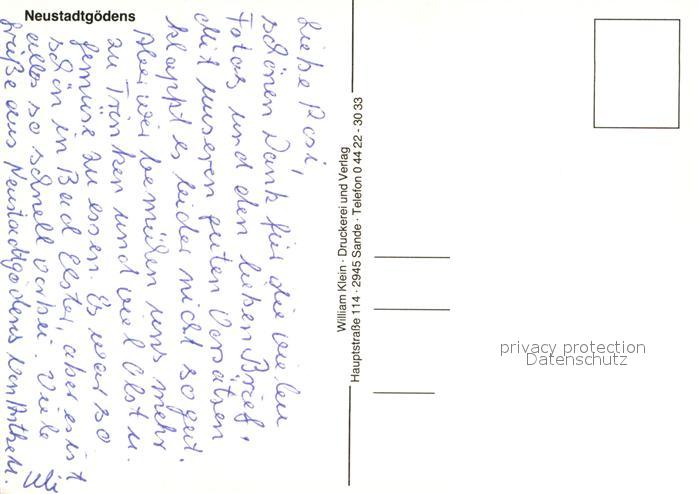 Neustadtgödens
Liebe Rosi,
schönen Dank für die vielen
Fotos und den lieben Brief.
Mit unseren guten Vorsätzen
klappt es leider nicht so gut.
Aber wir bemühen uns mehr
zu Trinken und viel Obst u.
Gemüse zu essen. Es war so
schön in Bad Elster, aber es ist
alles so schnell vorbei. Viele
Grüße aus Neustadtgödens von
Uli
William Klein · Druckerei und Verlag
Hauptstraße 114 · 2945 Sande · Telefon 0 44 22 - 30 33
privacy protection
Datenschutz